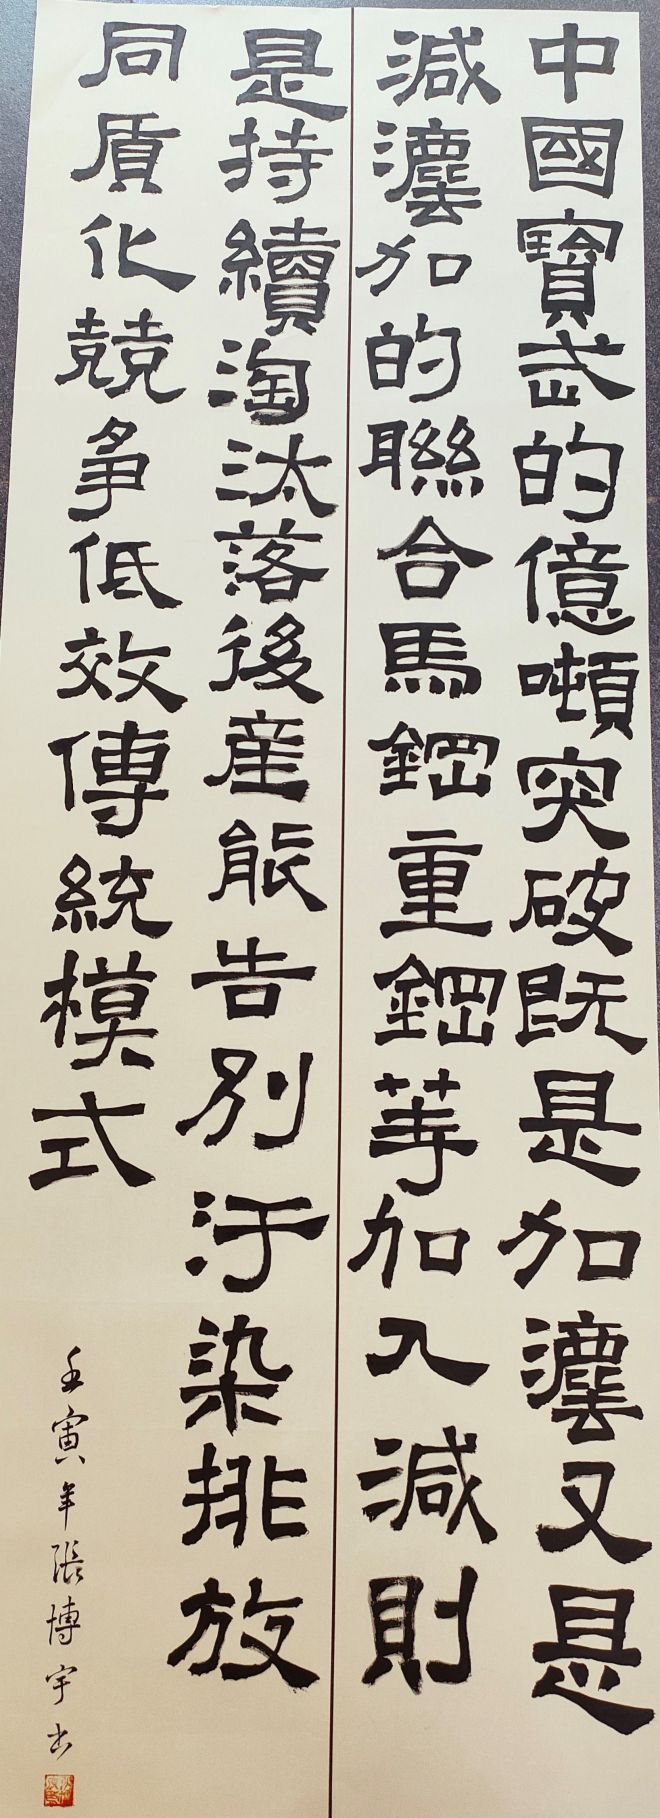 中國寶武的億噸突破既是加灋又是
減灋加的聯合馬鋼重鋼等加入減則
是持續淘汰落後產能告別汙染排放
同質化競爭低效傳統模式
壬寅年張博宇書